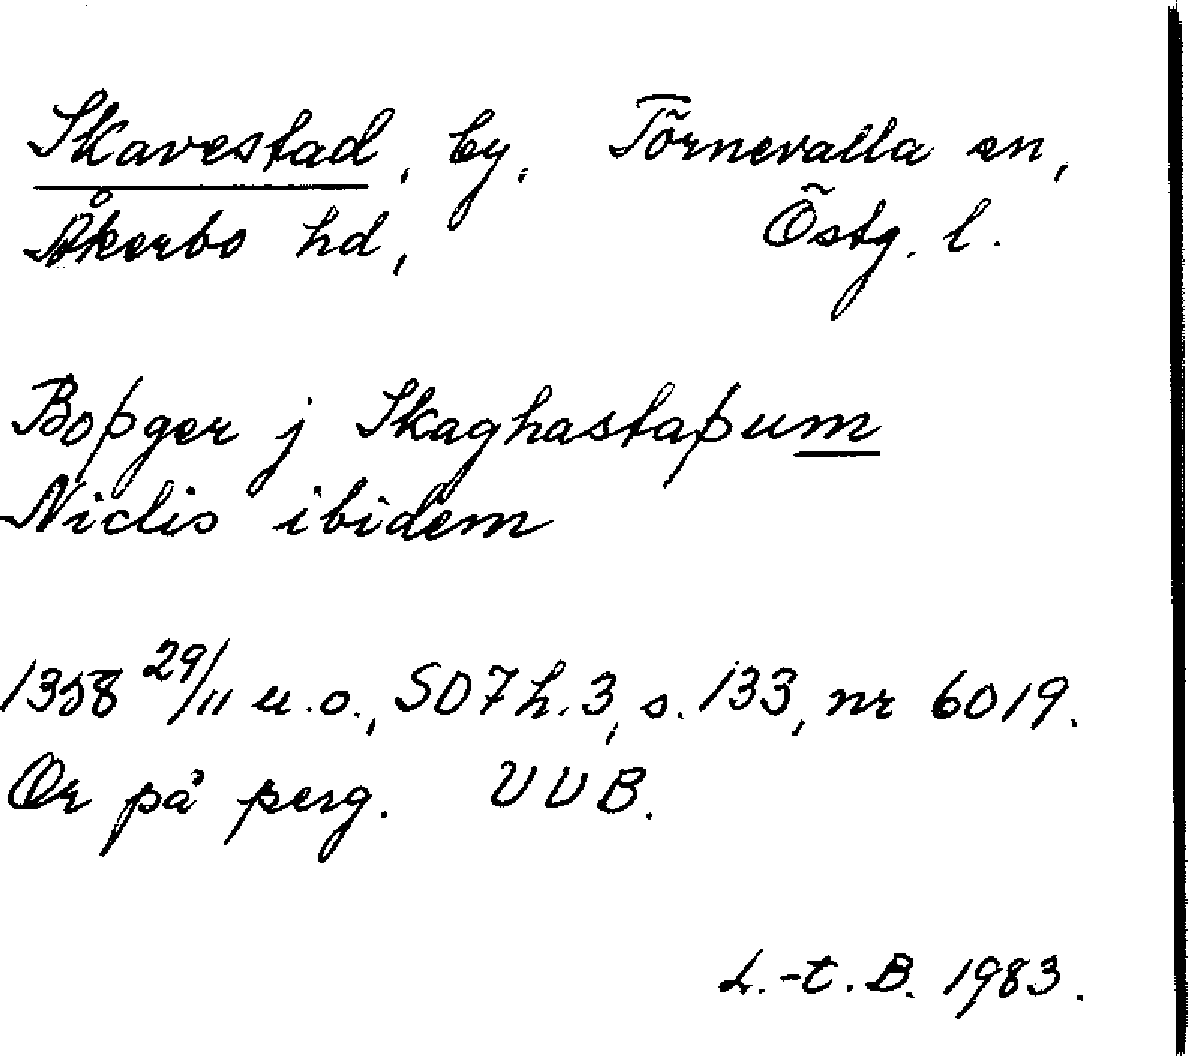 Skavestad, by, Törnevalla sn,
Åkerbo hd, Östg. l.
Boþger j Skaghastaþum
Niclis ibidem
1358 29/11 u.o., SD7 h.3, s. 133, nr 6019.
Or på perg. UUB.
L.-t. B. 1983.